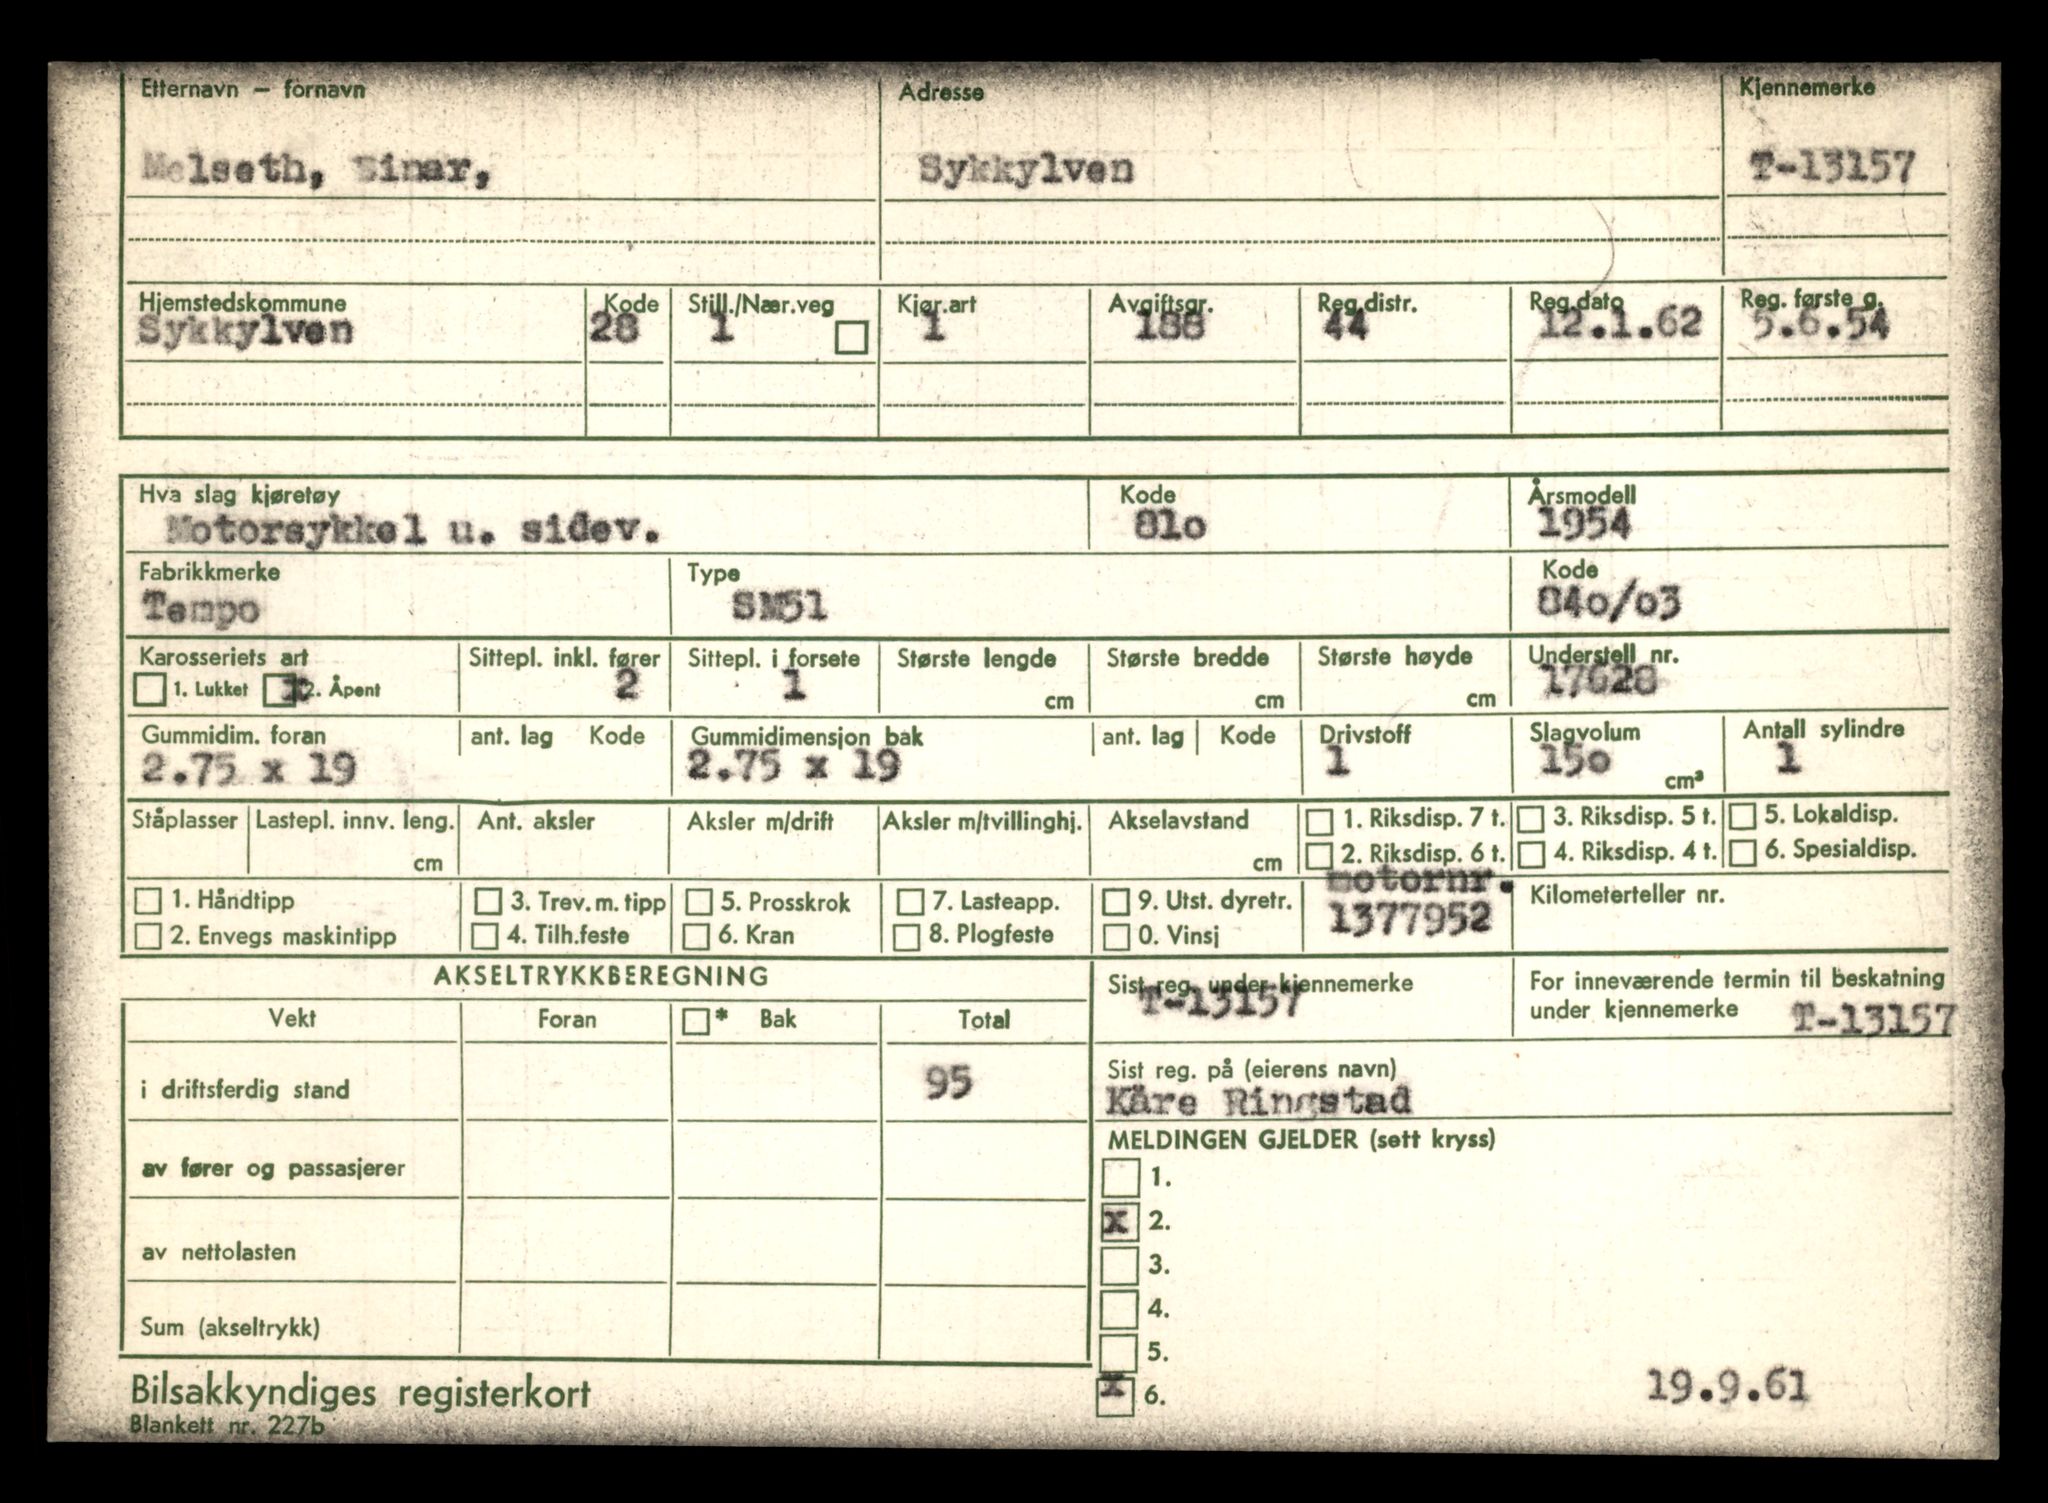 Etternavn — fornavn Adresse Kjennemerke
Melseth, Einar, Sykkylven T-13157
Hjemstedskommune Kode Still./Nær.veg Kjør.art Avgiftsgr. Reg.distr. Reg.dato Reg. første g.
Sykkylven 28 1 1 188 44 12.1.62 5.6.54
Hva slag kjøretøy Kode Årsmodell
Motorsykkel u. sidev. 81o 1954
Fabrikkmerke Type Kode
Tempo SM51 84o/o3
Karosseriets art Sittepl. inkl. fører Sittepl. i forsete Største lengde Største bredde Største høyde Understell nr.
1. Lukket x 2. Åpent 2 1 cm cm cm 17628
Gummidim. foran ant. lag Kode Gummidimensjon bak ant. lag Kode Drivstoff Slagvolum Antall sylindre
2.75 x 19 2.75 x 19 1 15o cm³ 1
Ståplasser Lastepl. innv. leng. Ant. aksler Aksler m/drift Aksler m/tvillinghj. Akselavstand 1. Riksdisp. 7 t. 3. Riksdisp. 5 t. 5. Lokaldisp.
cm cm 2. Riksdisp. 6 t. 4. Riksdisp. 4 t. 6. Spesialdisp.
1. Håndtipp 3. Trev. m. tipp 5. Prosskrok 7. Lasteapp. 9. Utst. dyretr. motornr. Kilometerteller nr.
2. Envegs maskintipp 4. Tilh.feste 6. Kran 8. Plogfeste 0. Vinsj 1377952
AKSELTRYKKBEREGNING Sist reg. under kjennemerke For inneværende termin til beskatning
T-13157 under kjennemerke T-13157
Vekt Foran * Bak Total
i driftsferdig stand 95 Sist reg. på (eierens navn)
Kåre Ringstad
MELDINGEN GJELDER (sett kryss)
av fører og passasjerer 1.
x 2.
av nettolasten 3.
4.
Sum (akseltrykk) 5.
x 6. 19.9.61
Bilsakkyndiges registerkort
Blankett nr. 227b